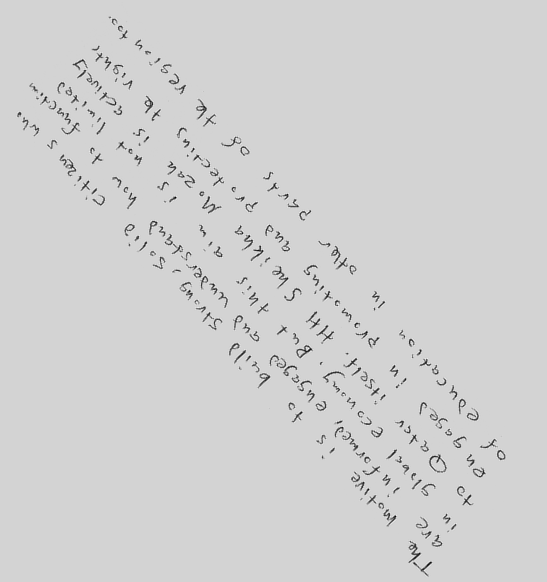 The motive is to build strong, solid citizens who
are informed, engaged and understand how to function
in global economy. But this aim is not limited
to Qatar itself. HH Sheikha Mozah is actively
engaged in promoting and protecting the right
of education in other parts of the region too.